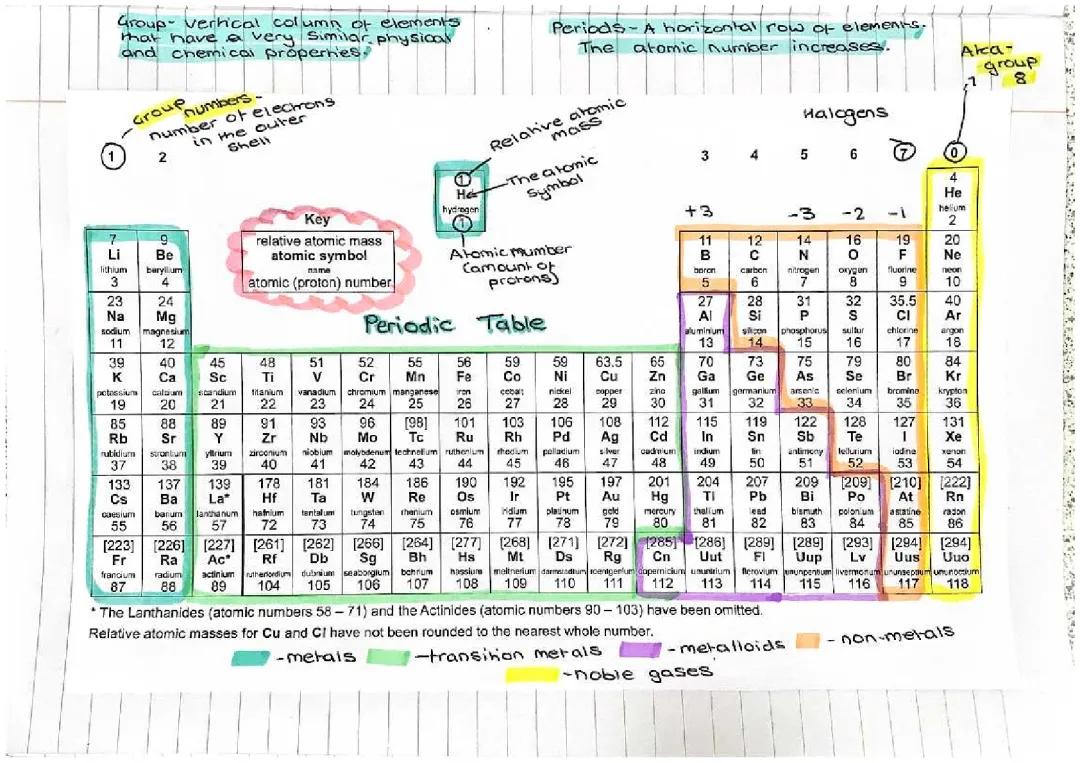 Group- vertical column of elements
that have a very similar physical
and chemical properties.
Periods - A horizontal row of elements.
The atomic number increases.
Aka-
group
8
Group numbers-
number of electrons
in the outer
shell
Relative atomic
mass
The atomic
symbol
Halogens
1 2 3 4 5 6 7 0
1
He
hydrogen
1
Atomic number
(amount of
protons)
+3 -3 -2 -1
Key
relative atomic mass
atomic symbol
name
atomic (proton) number
4
He
helium
2
7 9 11 12 14 16 19 20
Li Be B C N O F Ne
lithium beryllium boron carbon nitrogen oxygen fluorine neon
3 4 5 6 7 8 9 10
Periodic Table
23 24 27 28 31 32 35.5 40
Na Mg Al Si P S Cl Ar
sodium magnesium aluminium silicon phosphorus sulfur chlorine argon
11 12 13 14 15 16 17 18
39 40 45 48 51 52 55 56 59 59 63.5 65 70 73 75 79 80 84
K Ca Sc Ti V Cr Mn Fe Co Ni Cu Zn Ga Ge As Se Br Kr
potassium calcium scandium titanium vanadium chromium manganese iron cobalt nickel copper zinc gallium germanium arsenic selenium bromine krypton
19 20 21 22 23 24 25 26 27 28 29 30 31 32 33 34 35 36
85 88 89 91 93 96 [98] 101 103 106 108 112 115 119 122 128 127 131
Rb Sr Y Zr Nb Mo Tc Ru Rh Pd Ag Cd In Sn Sb Te I Xe
rubidium strontium yttrium zirconium niobium molybdenum technetium ruthenium rhodium palladium silver cadmium indium tin antimony tellurium iodine xenon
37 38 39 40 41 42 43 44 45 46 47 48 49 50 51 52 53 54
133 137 139 178 181 184 186 190 192 195 197 201 204 207 209 [209] [210] [222]
Cs Ba La* Hf Ta W Re Os Ir Pt Au Hg Tl Pb Bi Po At Rn
caesium barium lanthanum hafnium tantalum tungsten rhenium osmium iridium platinum gold mercury thallium lead bismuth polonium astatine radon
55 56 57 72 73 74 75 76 77 78 79 80 81 82 83 84 85 86
[223] [226] [227] [261] [262] [266] [264] [277] [268] [271] [272] [285] [286] [289] [289] [293] [294] [294]
Fr Ra Ac* Rf Db Sg Bh Hs Mt Ds Rg Cn Uut Fl Uup Lv Uus Uuo
francium radium actinium rutherfordium dubnium seaborgium bohrium hassium meitnerium darmstadtium roentgenium copernicium ununtrium flerovium ununpentium livermorium ununseptium ununoctium
87 88 89 104 105 106 107 108 109 110 111 112 113 114 115 116 117 118
* The Lanthanides (atomic numbers 58 – 71) and the Actinides (atomic numbers 90 – 103) have been omitted.
Relative atomic masses for Cu and Cl have not been rounded to the nearest whole number.
-metals -transition metals -metalloids - non-metals
-noble gases